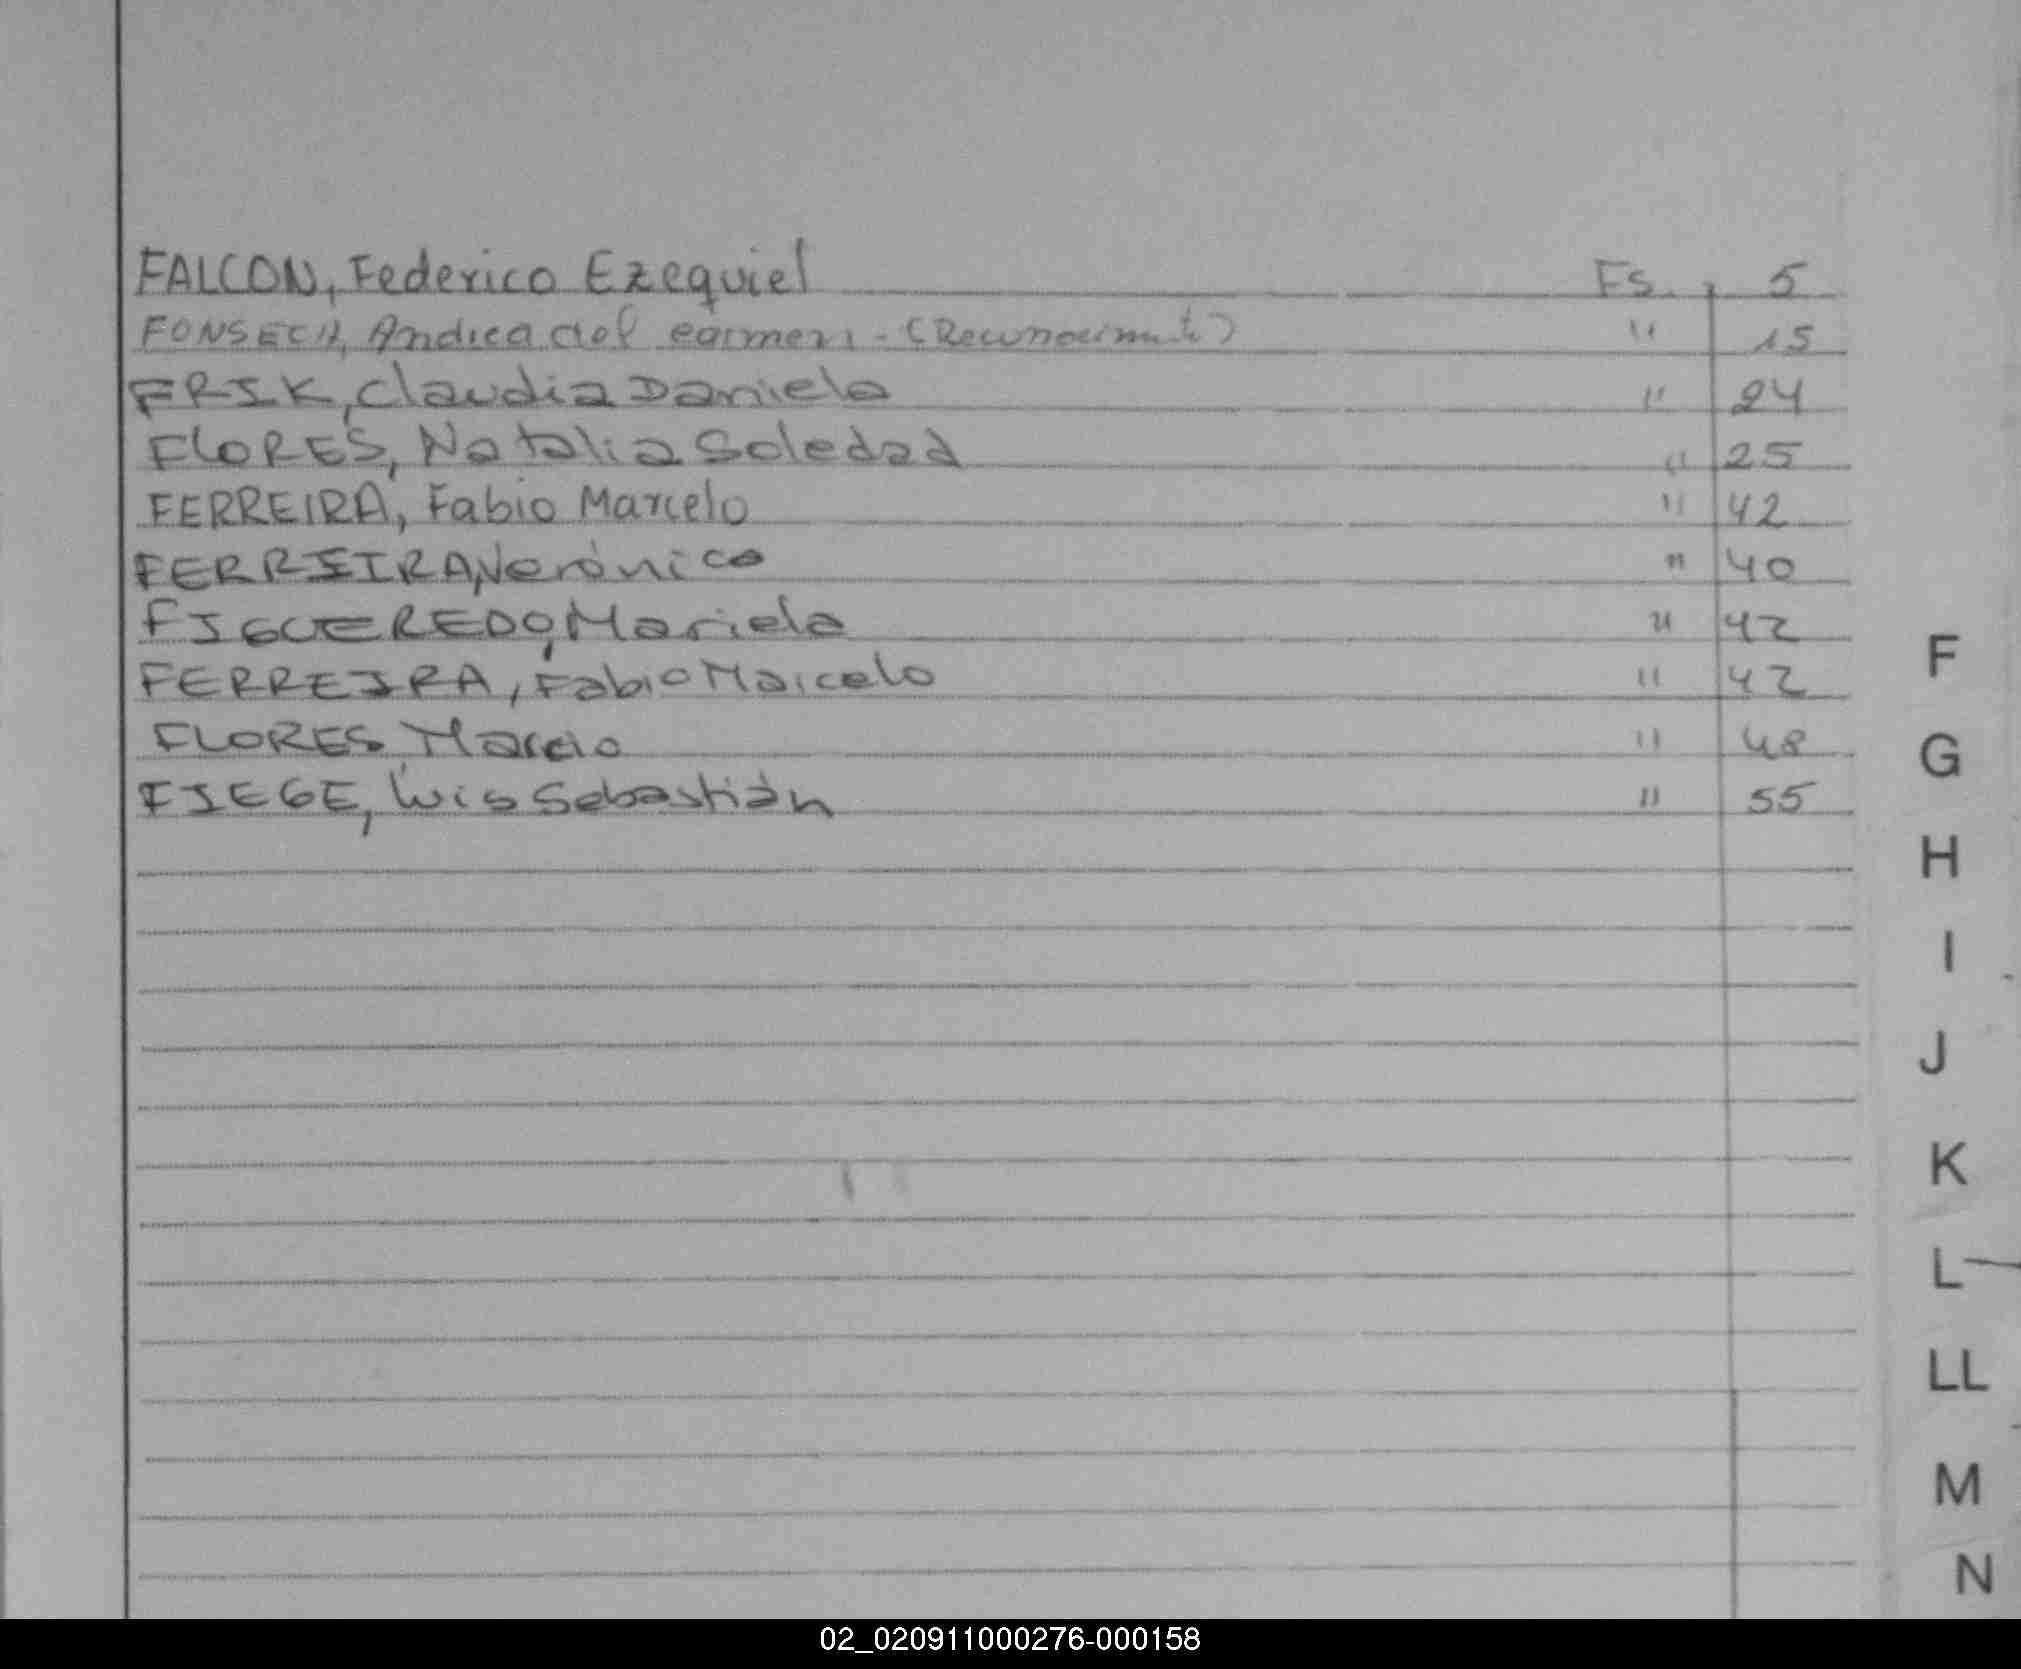 FALCON, Federico Ezequiel Fs. 5
FONSECA, Andrea del carmen - (Reconocimiento) " 15
FRIK, Claudia Daniela " 24
FLORES, Natalia Soledad " 25
FERREIRA, Fabio Marcelo " 42
FERREIRA, Verónica " 40
FIGUEREDO, Mariela " 42
FERREIRA, Fabio Marcelo " 42
FLORES, Marcio " 48
FIEGE, Luis Sebastián " 55
F
G
H
I
J
K
L
LL
M
N
02_020911000276-000158